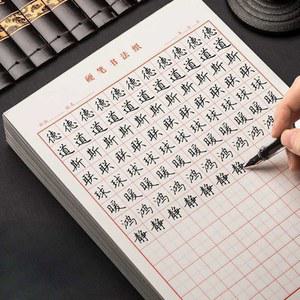 硬笔书法纸
德德德德德德德德德
道道道道道道道道道
斯斯斯斯斯斯斯斯斯
联联联联联联联联联
球球球球球球球球球
暖暖暖暖暖暖暖暖暖
鸿鸿鸿鸿鸿鸿鸿鸿
静静静静静静